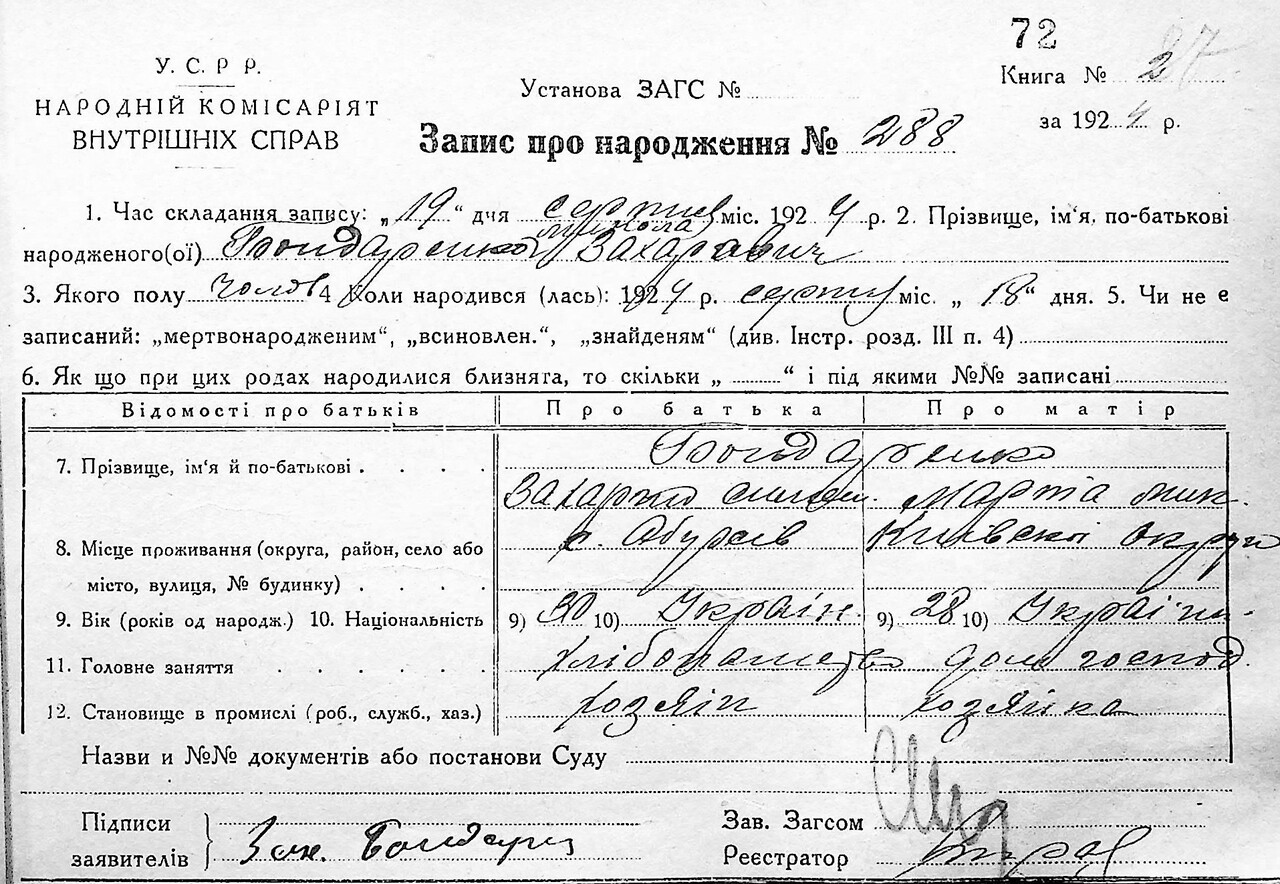 72
У. С. Р Р.
Книга № 2
НАРОДНІЙ КОМІСАРІЯТ
ВНУТРІШНІХ СПРАВ
Установа ЗАГС №
за 1924 р.
Запис про народження № 288
1. Час складання запису: „19“ дня серпня міс. 1924 р. 2. Прізвище, ім'я, по-батькові
Микола
народженого(ої) Бондаренко Захарович
3. Якого полу чолов 4 Коли народився (лась): 1924 р. серпня міс. „18“ дня. 5. Чи не є
записаний: „мертвонародженим“, „всиновлен.“, „знайденям“ (див. Інстр. розд. III п. 4)
6. Як що при цих родах народилися близняга, то скільки „ “ і під якими №№ записані
Відомості про батьків Про батька Про матір
7. Прізвище, ім'я й по-батькові Бондаренко
Захарко Марта
8. Місце проживання (округа, район, село або с. Обухів Київскої округи
місто, вулиця, № будинку)
9. Вік (років од народж.) 10. Національність 9) 30 10) Україн. 9) 28 10) Україн.
11. Головне заняття хлібопашество дом господ.
12. Становище в промислі (роб., служб., хаз.) хозяін хозяйка
Назви и №№ документів або постанови Суду
Підписи
заявителів Зах. Бондарен
Зав. Загсом
Реєстратор